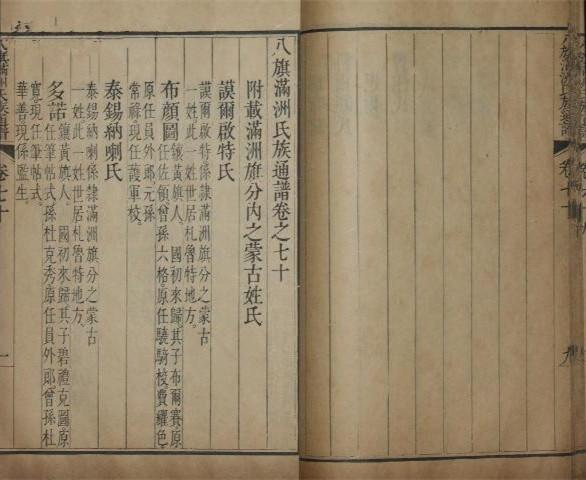 八旗滿洲氏族通譜卷之七十
附載滿洲旗分內之蒙古姓氏
謨爾啟特氏
謨爾啟特係隸滿洲旗分之蒙古
一姓此一姓世居札魯特地方
布顏圖
鑲黃旗人國初來歸其子布爾賽原
任佐領曾孫六格原任驍騎校費耀色
原任員外郎元孫
常祿現任護軍校
泰錫納喇氏
泰錫納喇係隸滿洲旗分之蒙古
一姓此一姓世居札魯特地方
多諾
鑲黃旗人國初來歸其子碧禮克圖原
任筆帖式孫杜克秀原任員外郎曾孫杜
寬現任筆帖式
華善現係監生
八旗滿洲氏族通譜
卷七十
一
八旗滿洲氏族通譜